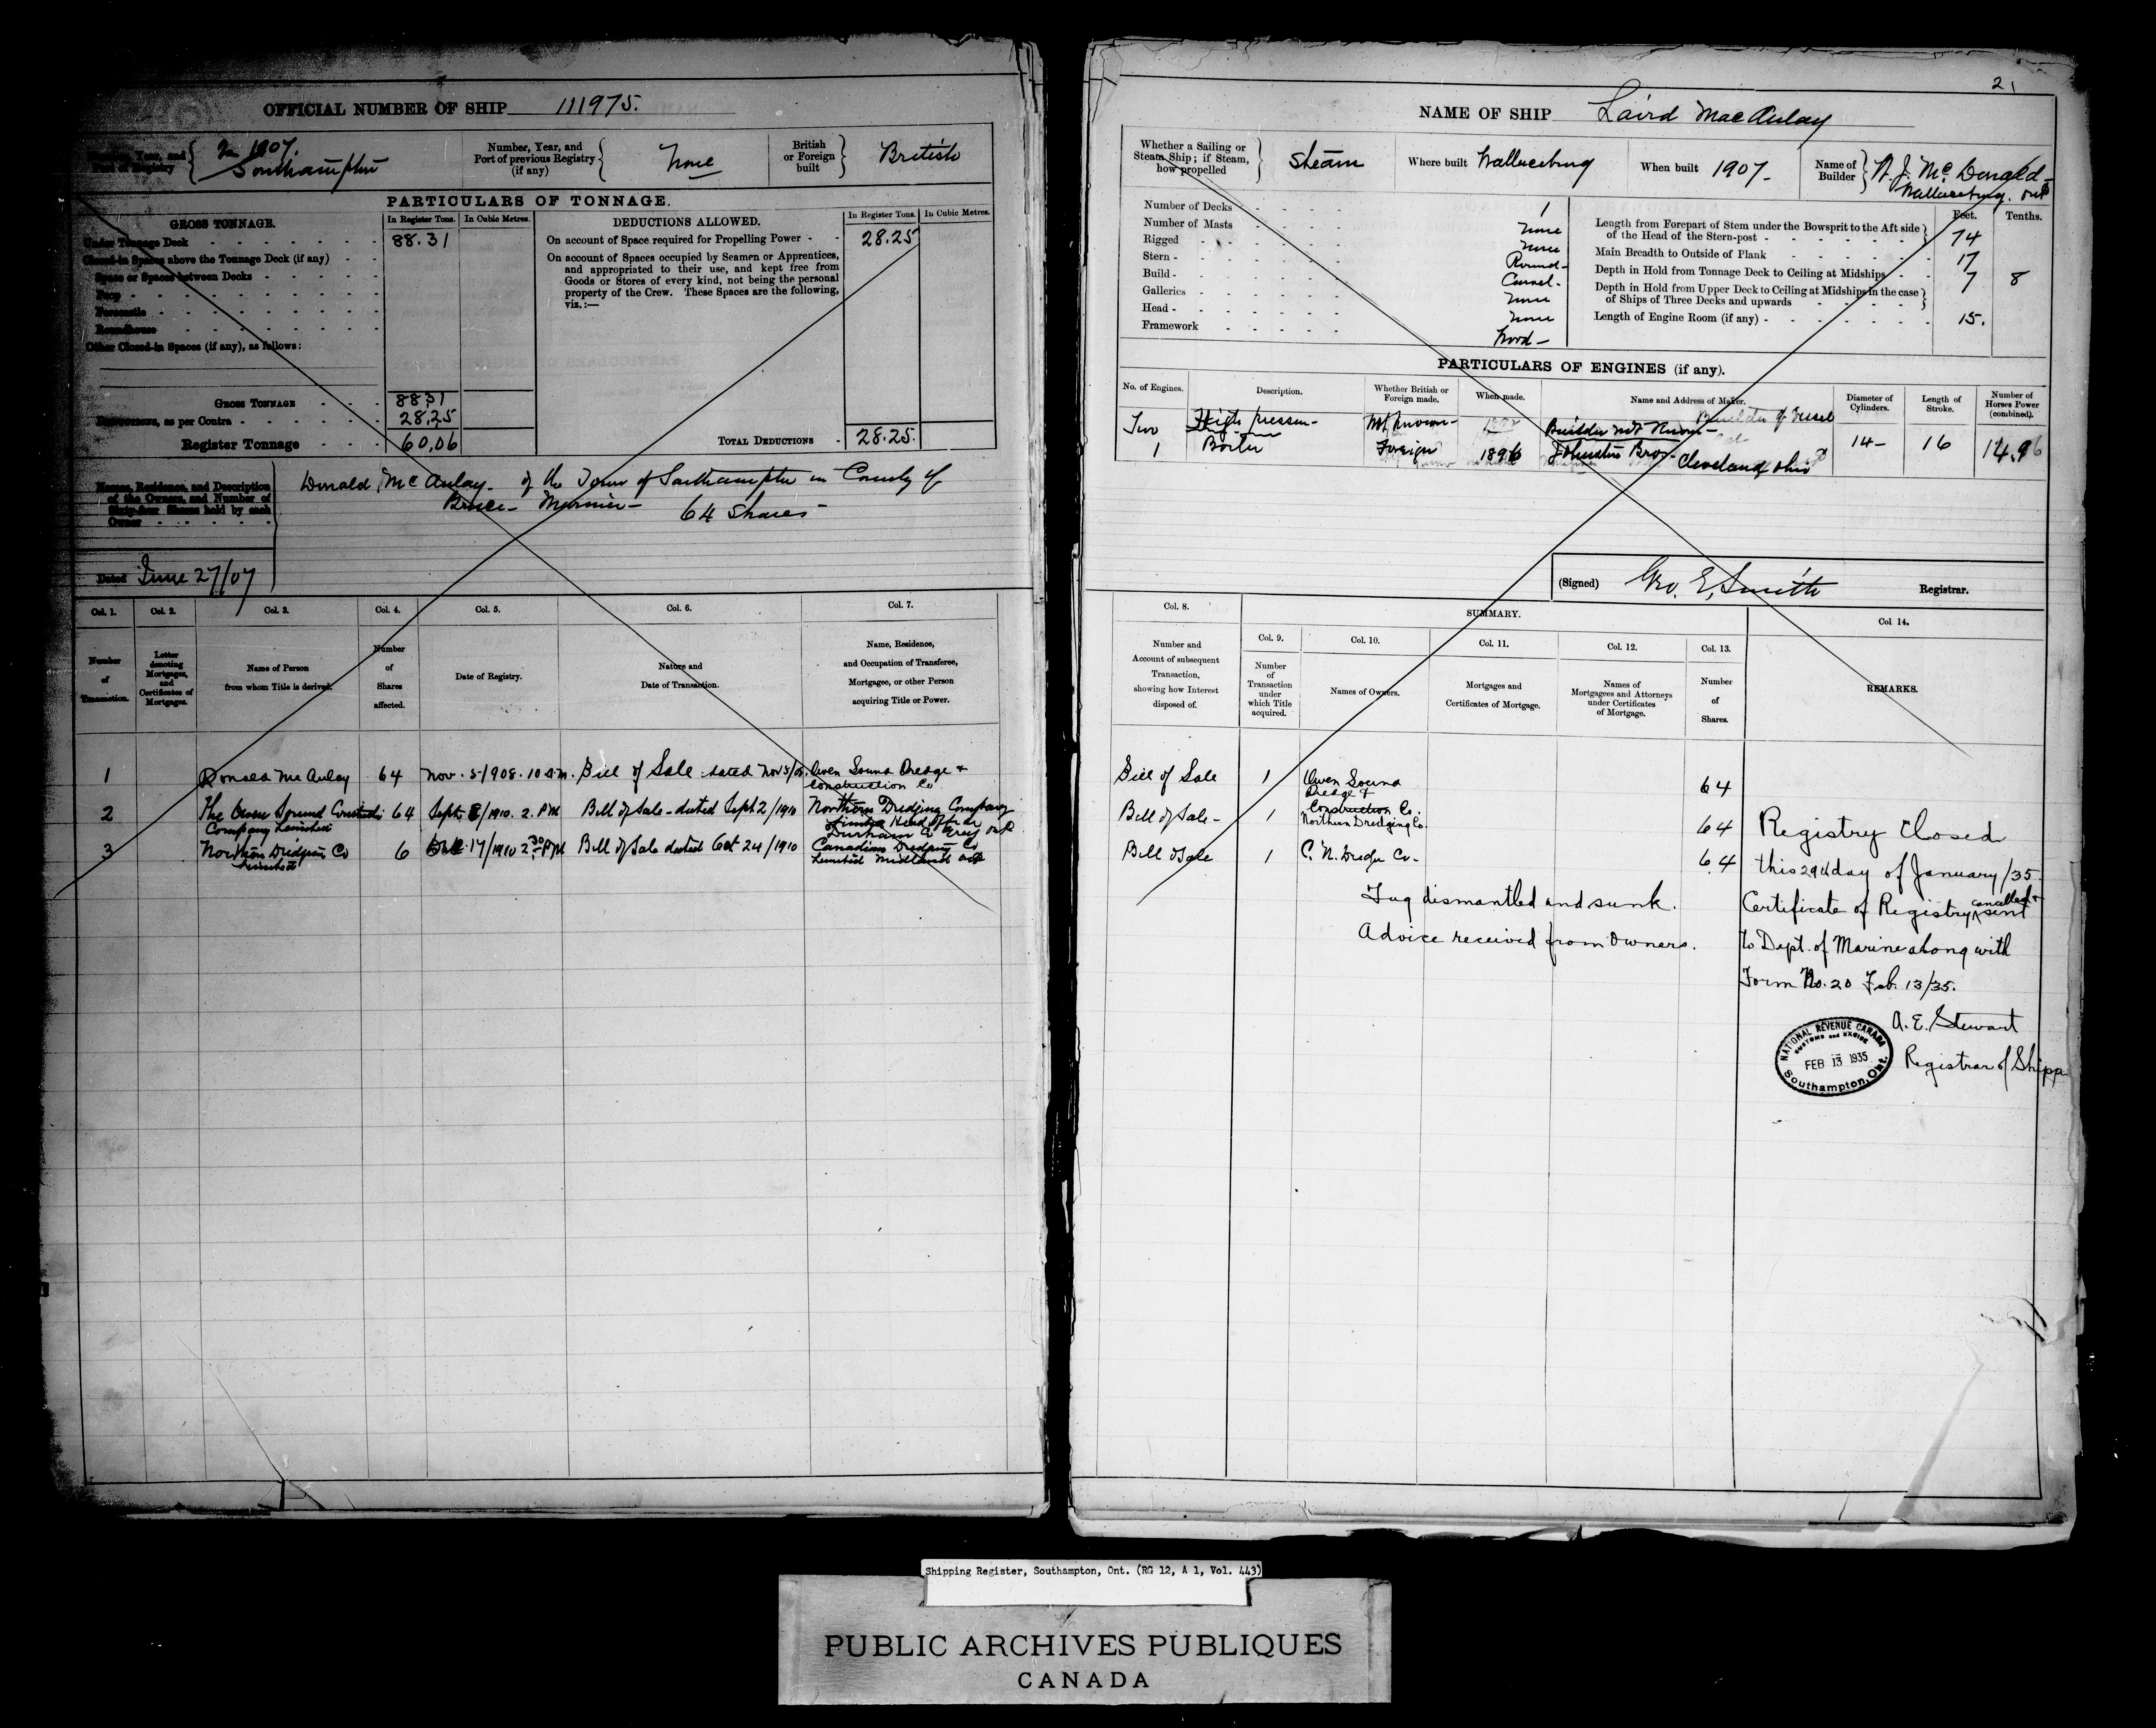 OFFICIAL NUMBER OF SHIP 111975.
Port of Registry
2 in 1907.
Southampton
Number, Year, and
Port of previous Registry
(if any)
None
British
or Foreign
built
British
PARTICULARS OF TONNAGE.
GROSS TONNAGE.
In Register Tons.
In Cubic Metres.
DEDUCTIONS ALLOWED.
In Register Tons.
In Cubic Metres.
Under Tonnage Deck 88.31
On account of Space required for Propelling Power - 28.25
Closed-in Spaces above the Tonnage Deck (if any)
Space or Spaces between Decks
Poop
Forecastle
Roundhouse
Other Closed-in Spaces (if any), as follows:
On account of Spaces occupied by Seamen or Apprentices,
and appropriated to their use, and kept free from
Goods or Stores of every kind, not being the personal
property of the Crew. These Spaces are the following,
viz.:—
GROSS TONNAGE 88.31
DEDUCTIONS, as per Contra 28.25
Register Tonnage 60.06
TOTAL DEDUCTIONS 28.25.
Names, Residence, and Description
of the Owners, and Number of
Sixty-four Shares held by each
Owner
Donald McAulay of the Town of Southampton in County of
Bruce - Mariner - 64 Shares
Dated June 27/07
Col. 1.
Col. 2.
Col. 3.
Col. 4.
Col. 5.
Col. 6.
Col. 7.
Number
of
Transaction.
Letter
denoting
Mortgages,
and
Certificates of
Mortgages.
Name of Person
from whom Title is derived.
Number
of
Shares
affected.
Date of Registry.
Nature and
Date of Transaction.
Name, Residence,
and Occupation of Transferee,
Mortgagee, or other Person
acquiring Title or Power.
1 Donald McAulay 64 Nov. 5/908. 10 a.m. Bill of Sale dated Nov 5/08. Owen Sound Dredge &
Construction Co
2 The Owen Sound 64 Sept. 8/1910. 2. P M Bill of Sale - dated Sept 2/1910 Northern Dredging Company
Company Limited
Limited Head Office
Durham Co Grey Ont
3 Northern Dredging Co 6 17/1910 2.30 PM Bill of Sale dated Oct 24/1910 Canadian Dredging Co
Limited
Limited Midland Ont
2
NAME OF SHIP Laird MacAulay
Whether a Sailing or
Steam Ship; if Steam,
how propelled
Steam
Where built Wallaceburg
When built 1907-
Name of
Builder
McDonald
Wallaceburg. Ont
Number of Decks 1
Number of Masts None
Rigged None
Stern - Round-
Build - Carvel-
Galleries None
Head - None
Framework Wood-
Feet. Tenths.
Length from Forepart of Stem under the Bowsprit to the Aft side
of the Head of the Stern-post - 74
Main Breadth to Outside of Plank 17
Depth in Hold from Tonnage Deck to Ceiling at Midships 7 8
Depth in Hold from Upper Deck to Ceiling at Midships in the case
of Ships of Three Decks and upwards
Length of Engine Room (if any) - 15.
PARTICULARS OF ENGINES (if any).
No. of Engines.
Description.
Whether British or
Foreign made.
When made.
Name and Address of Maker.
Diameter of
Cylinders.
Length of
Stroke.
Number of
Horses Power
(combined).
Two High pressure Not known Builder not known 14- 16 14.96
1 Boiler Foreign 1896 Johnston Bros. Cleveland Ohio
(Signed) Geo. E. Smith Registrar.
Col. 8.
SUMMARY.
Col. 9.
Col. 10.
Col. 11.
Col. 12.
Col. 13.
Col. 14.
Number and
Account of subsequent
Transaction,
showing how Interest
disposed of.
Number
of
Transaction
under
which Title
acquired.
Names of Owners.
Mortgages and
Certificates of Mortgage.
Names of
Mortgagees and Attorneys
under Certificates
of Mortgage.
Number
of
Shares.
REMARKS.
Bill of Sale 1 Owen Sound 64
Dredge &
Construction Co.
Bill of Sale - 1 Northern Dredging Co. 64
Bill of Sale 1 C. N. Dredge Co - 64
Tug dismantled and sunk.
Advice received from Owners.
Registry Closed
this 29th day of January/35.
Certificate of Registry cancelled & sent
to Dept. of Marine along with
Form No. 20 Feb. 13/35.
A. E. Stewart
Registrar of Shipp
NATIONAL REVENUE CANADA
CUSTOMS and EXCISE
FEB 13 1935
Southampton, Ont.
Shipping Register, Southampton, Ont. (RG 12, A 1, Vol. 443)
PUBLIC ARCHIVES PUBLIQUES
CANADA